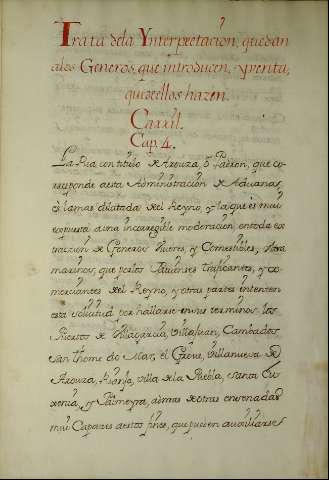 Trata dela Ynterpretacion, quedan
alos Generos, que introducen, y venta,
que de ellos hazen.
Cap. 4.
La Ria con titulo de Arouza, ô Padron, que co-
rresponde aesta Administracion de Aduanas,
es la mas dilatada del Reyno, y la que és mui
expuesta auna incorregible moderacion, en toda ex
traccion de Generos, y Comestibles,
marinos, que por los traficantes, y co-
merciantes del Reyno, y otras partes intenten
esta solicitud por hallarse en sus terminos, los
Puertos de Villagarcia, Villajuan, Cambados
San thome do Mar, el Grove, Villanueva de
Arouza, Rianjo, villa dela Puebla, Santa Eu-
xenia, y Palmeyra, ademas de otras ensenadas
mui Capazes aestos fines, que pueden auxiliarse